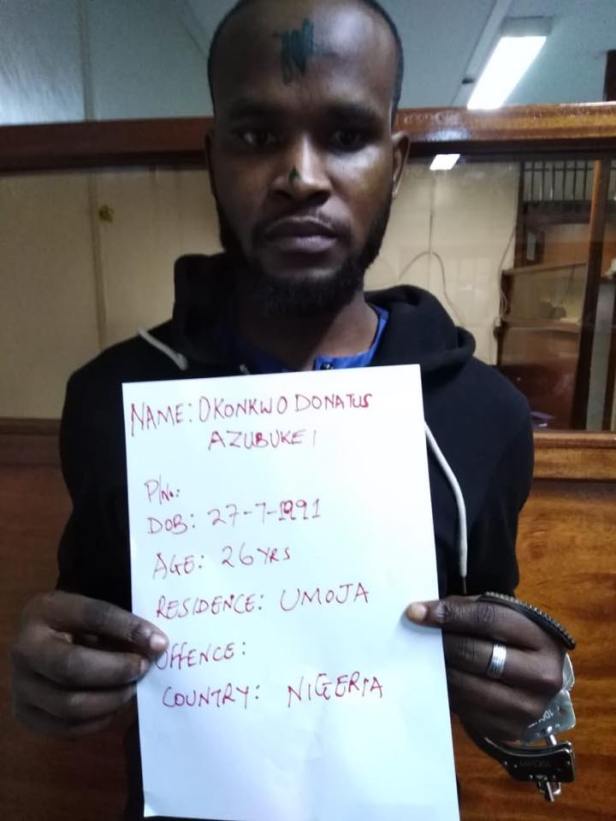 NAME: OKONKWO DONATUS
AZUBUKE I
P/No:
DOB: 27-7-1991
AGE: 26 YRS
RESIDENCE: UMOJA
OFFENCE:
COUNTRY: NIGERIA